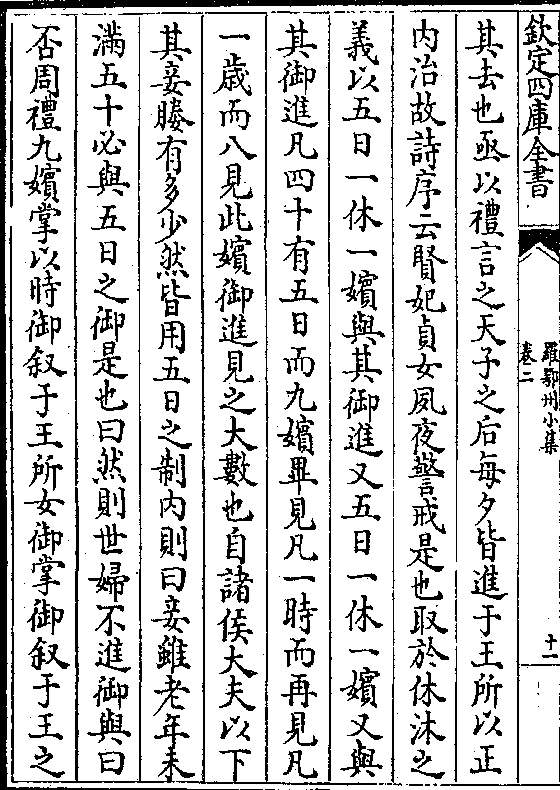 欽定四庫全書
羅鄂州小集
卷二
十二
其去也亟以禮言之天子之后每夕皆進于王所以正
内治故詩序云賢妃貞女夙夜警戒是也取於休沐之
義以五日一休一嬪與其御進又五日一休一嬪又與
其御進凡四十有五日而九嬪畢見凡一時而再見凡
一歳而八見此嬪御進見之大數也自諸侯大夫以下
其妾媵有多少然皆用五日之制内則曰妾雖老年未
滿五十必與五日之御是也曰然則世婦不進御與曰
否周禮九嬪掌以時御叙于王所女御掌御叙于王之